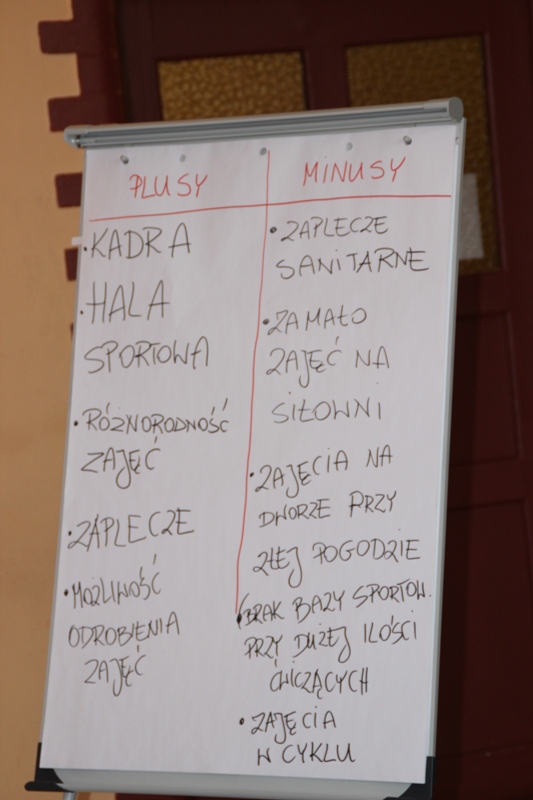 PLUSY
• KADRA
• HALA
SPORTOWA
• RÓŻNORODNOŚĆ
ZAJĘĆ
• ZAPLECZE
• MOŻLIWOŚĆ
ODROBIENIA
ZAJĘĆ
MINUSY
• ZAPLECZE
SANITARNE
• ZA MAŁO
ZAJĘĆ NA
SIŁOWNI
• ZAJĘCIA NA
DWORZE PRZY
ZŁEJ POGODZIE
(BRAK BAZY SPORTOW.
PRZY DUŻEJ ILOŚCI
ĆWICZĄCYCH
• ZAJĘCIA
W CYKLU